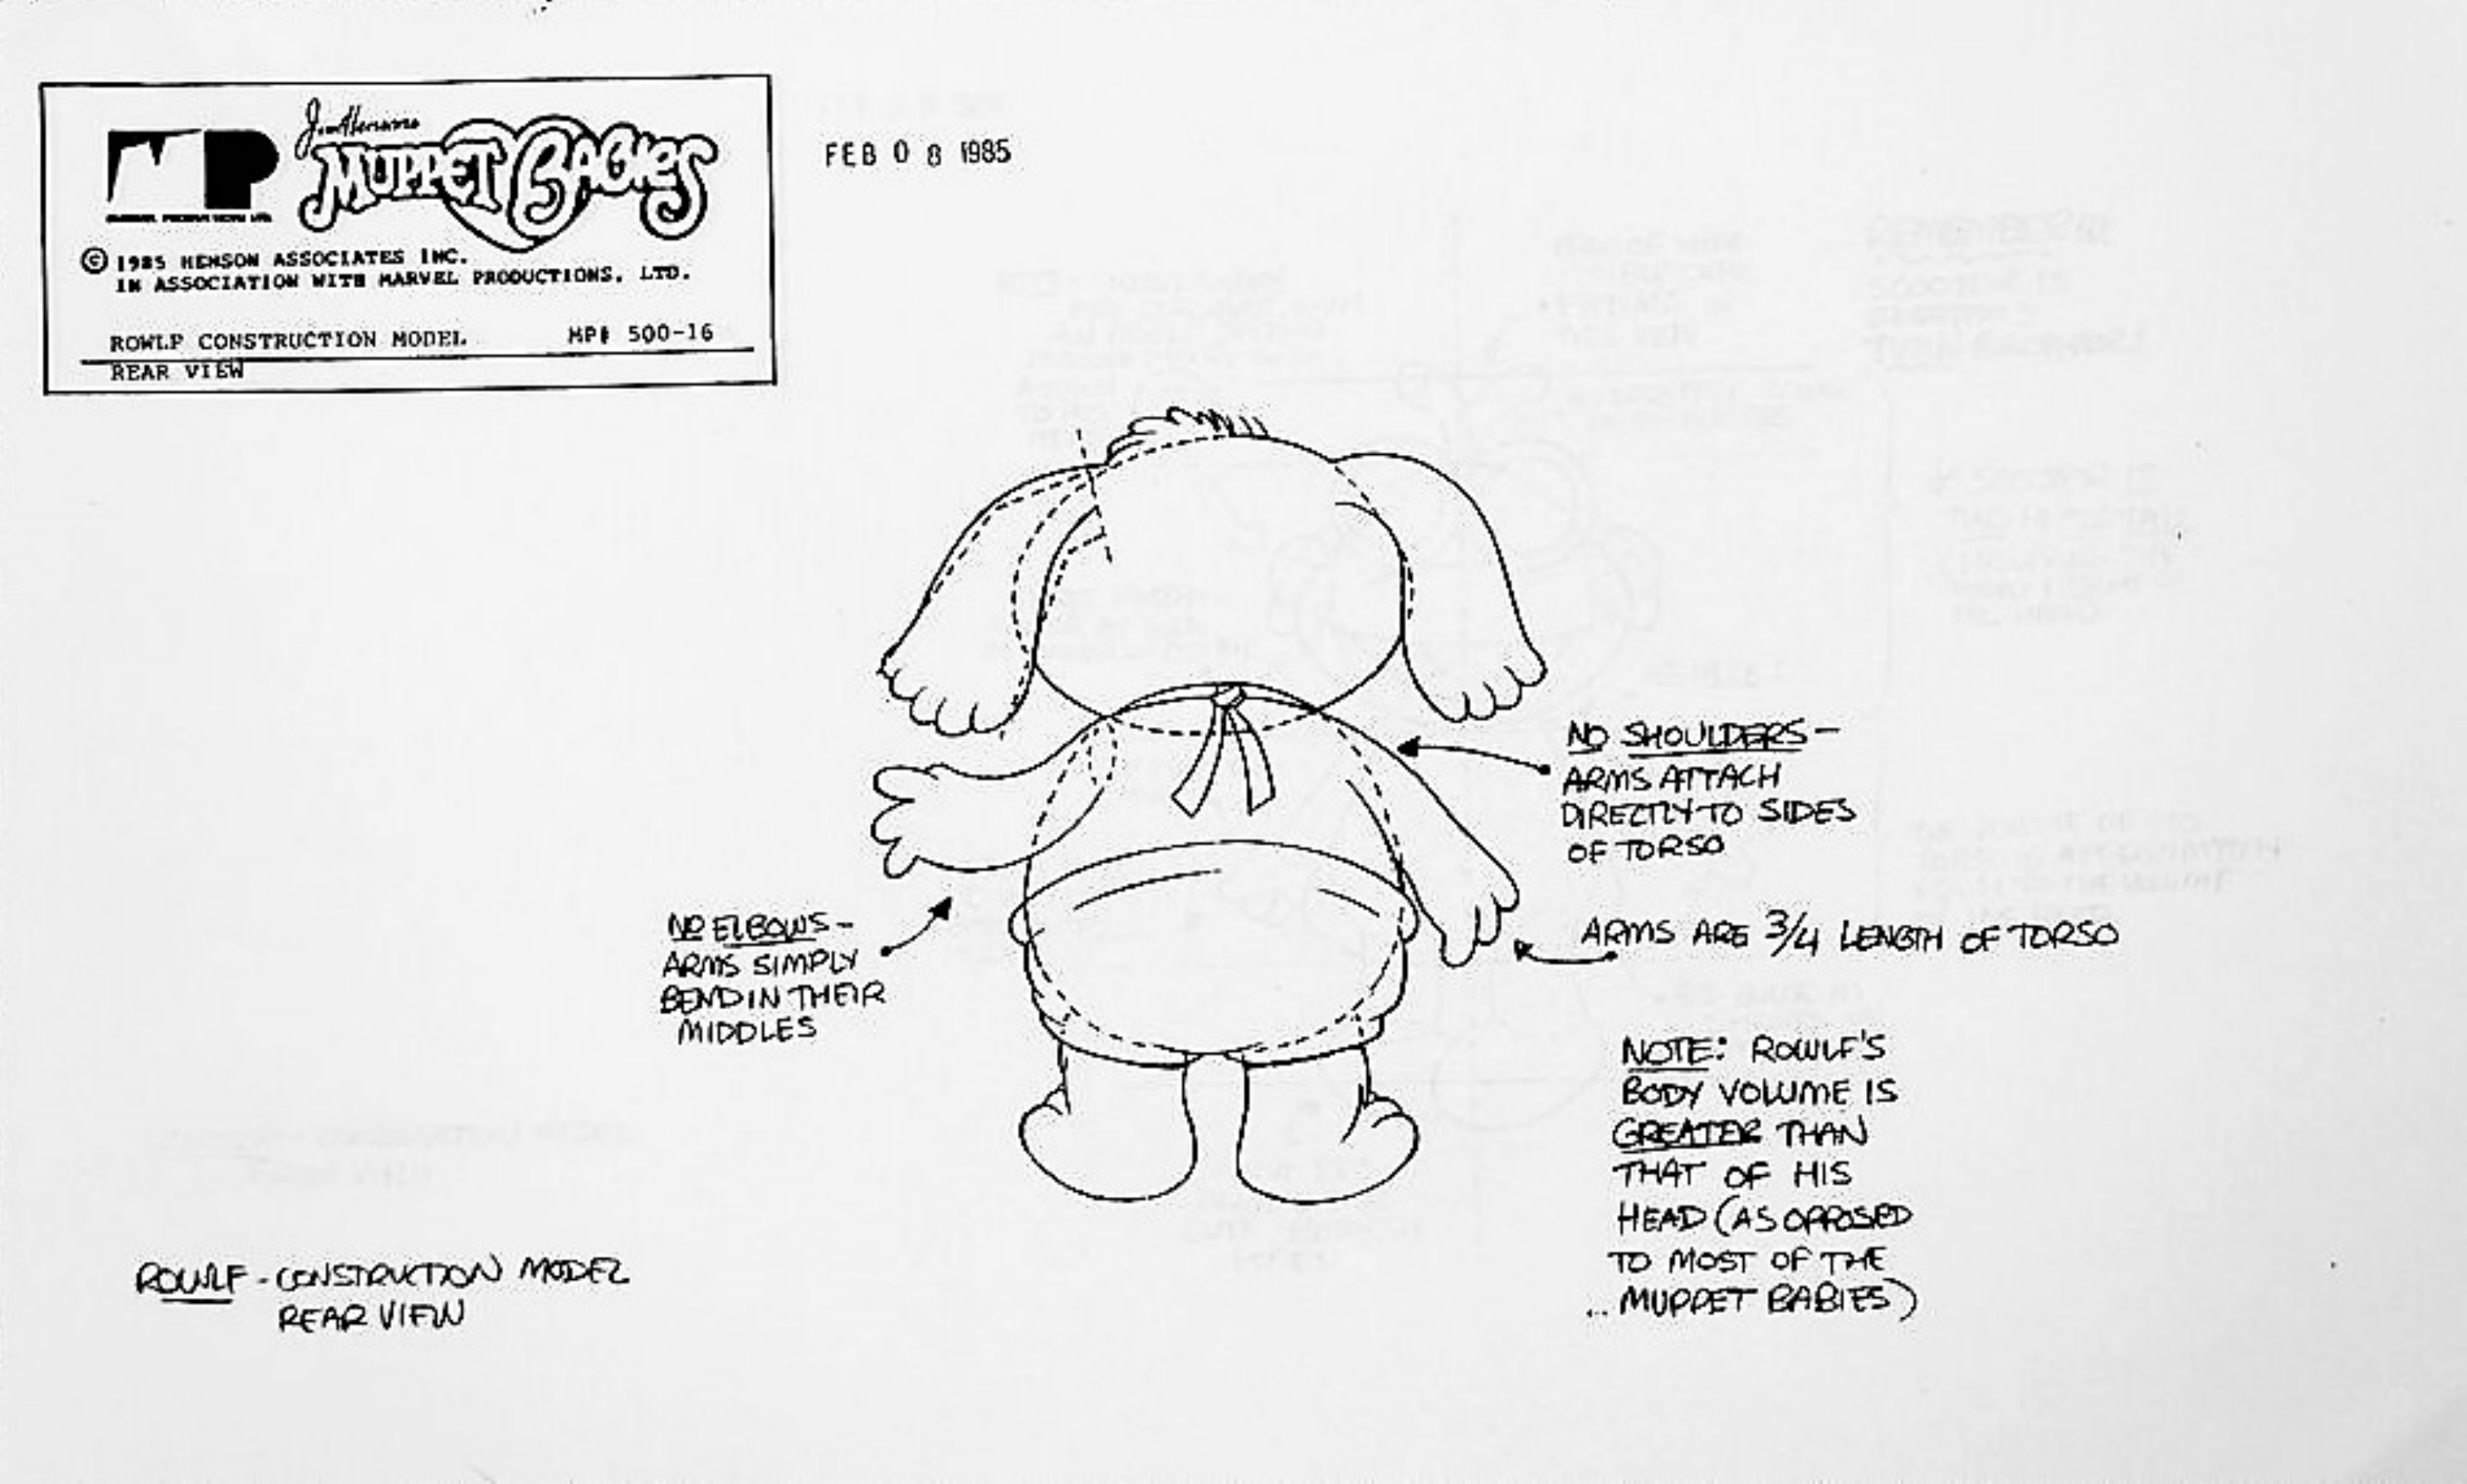 Jim Henson's
MUPPET BABIES
MP
© 1985 HENSON ASSOCIATES INC.
IN ASSOCIATION WITH MARVEL PRODUCTIONS, LTD.
ROWLF CONSTRUCTION MODEL MP# 500-16
REAR VIEW
FEB 08 1985
NO SHOULDERS-
ARMS ATTACH
DIRECTLY TO SIDES
OF TORSO
NO ELBOWS-
ARMS SIMPLY
BEND IN THEIR
MIDDLES
ARMS ARE 3/4 LENGTH OF TORSO
NOTE: ROWLF'S
BODY VOLUME IS
GREATER THAN
THAT OF HIS
HEAD (AS OPPOSED
TO MOST OF THE
... MUPPET BABIES)
ROWLF - CONSTRUCTION MODEL
REAR VIEW